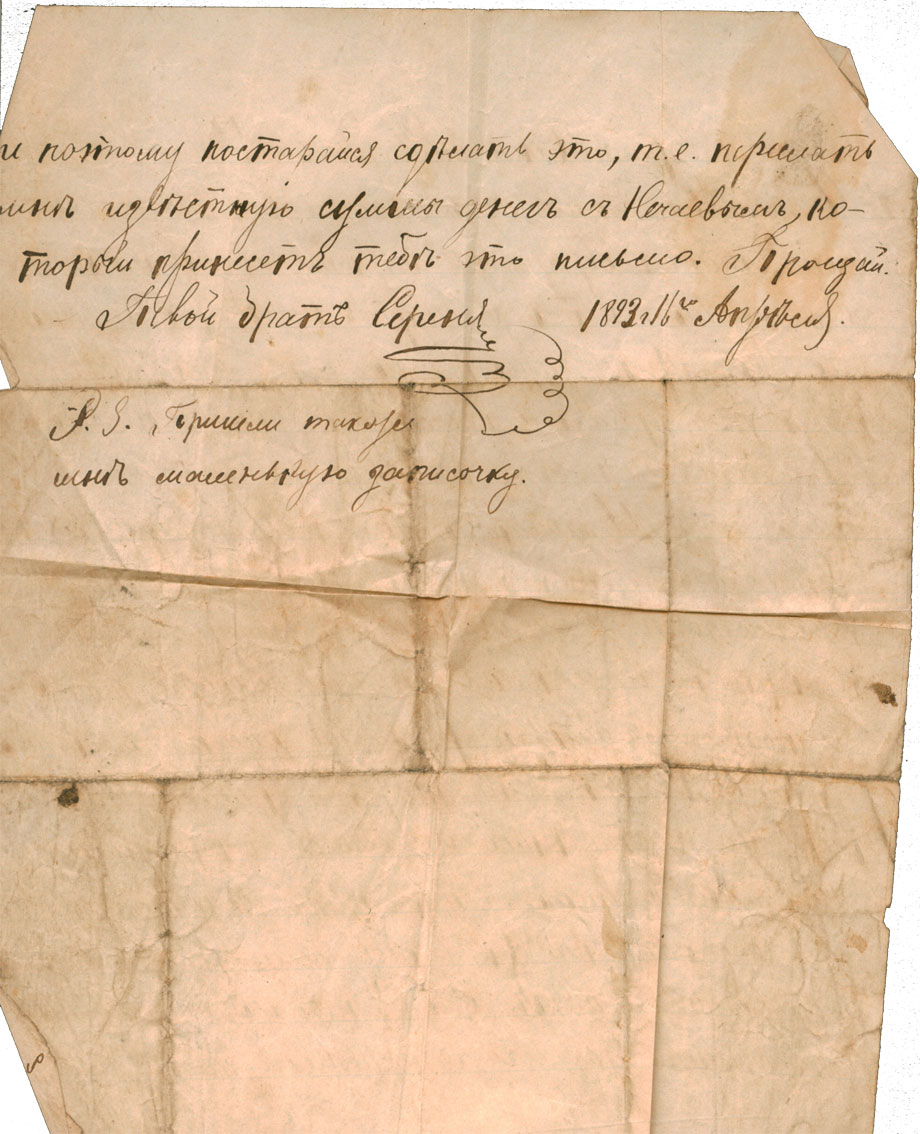 и поэтому постарайся сдѣлать это, т.е. переслать
мнѣ извѣстную суммы денегъ съ Нечаевымъ, ко-
торый принесетъ тебѣ это письмо. Прощай.
Твой братъ Сережа 1893 г. 16го Апрѣля.
P. S. Пришли также
мнѣ маленькую записочку.